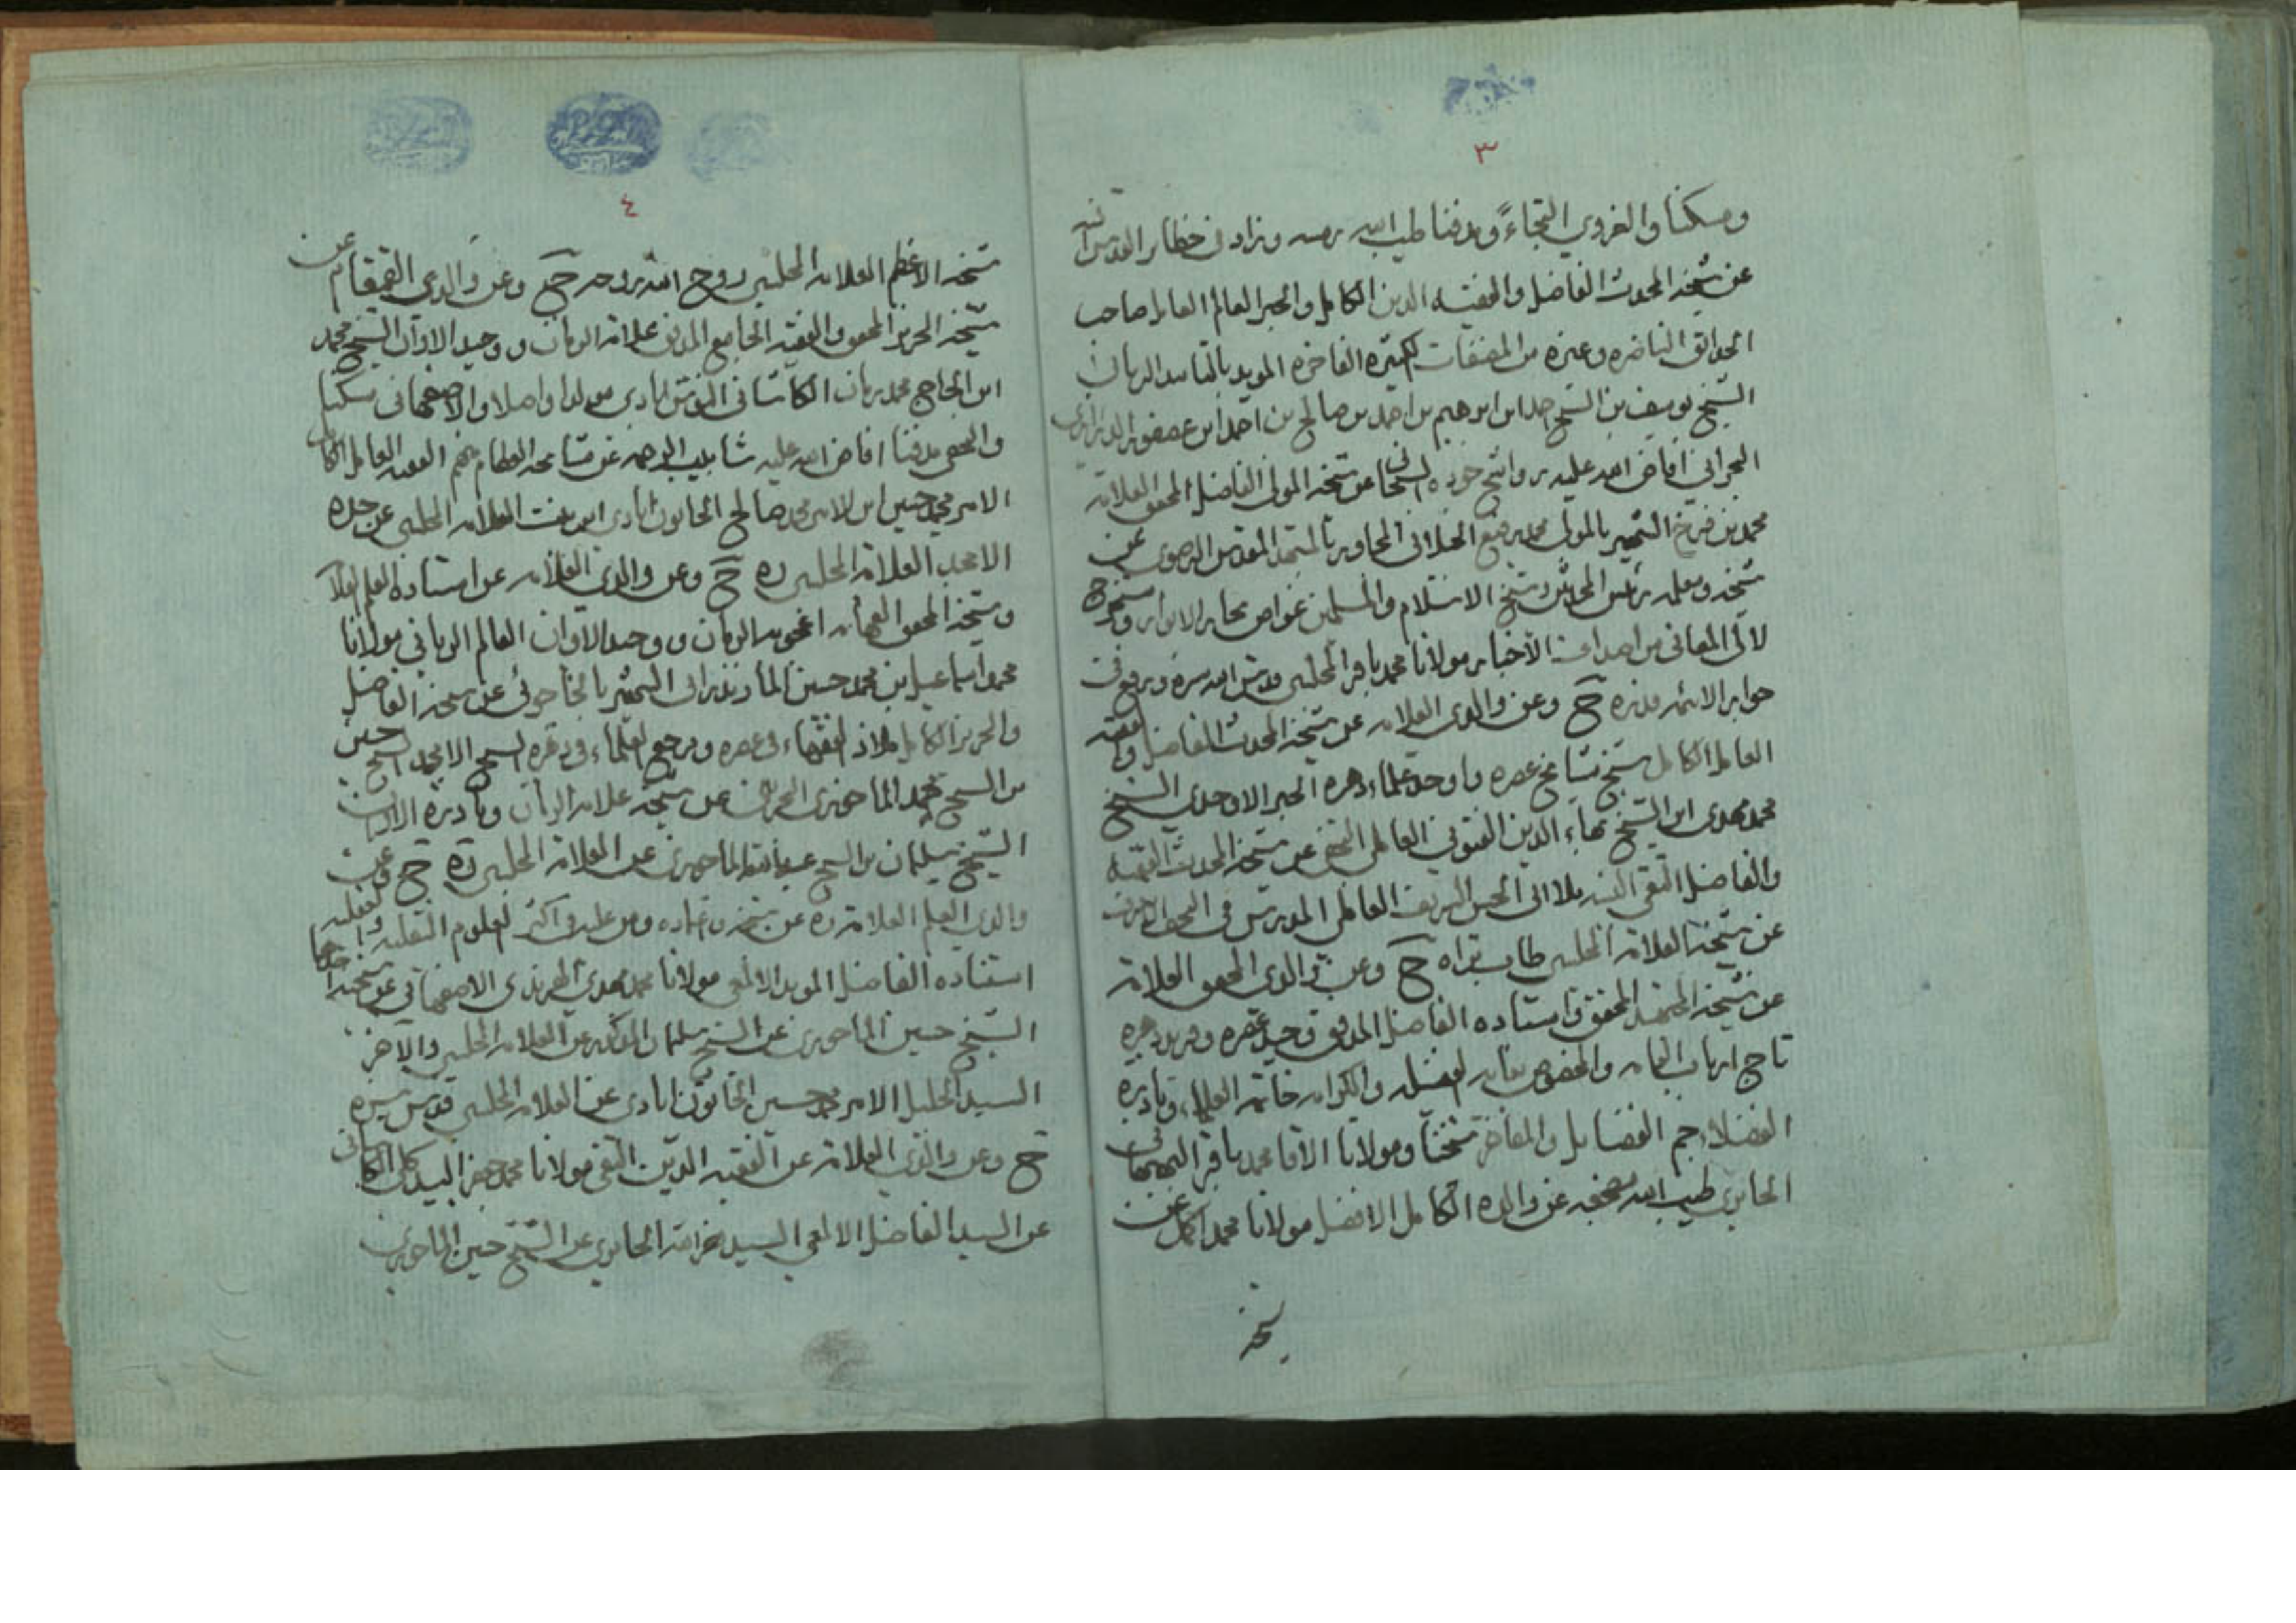 ٣
ومسكنا والغروي التجاء ومدفنا طيب الله رمسه وزاد في حظاير القدس انسه
عن شيخه المحدث الفاضل والفقيه الدين الكامل والحبر العالم العامل صاحب
الحدائق الناضره وغيره من المصنفات الكثيره الفاخره المويد بالتاييد الرباني
الشيخ يوسف بن الشيخ احمد ابن ابرهيم بن احمد بن صالح بن احمد ابن عصفور الدرازي
البحراني افاض الله عليه رواشح جوده السبحاني عن شيخه المولى الفاضل المحقق العلامه
محمد بن فرخ الشهير بالمولى محمد رفيع الجيلاني المجاور بالمشهد المقدس الرضوي عن
شيخه ومعلمه رئيس المحدثين وشيخ الاسلام والمسلمين غواص بحار الانوار ومستخرج
لآلي المعاني من اصداف الأخبار مولانا محمد باقر المجلسي قدس الله سره ورفع في
جوار الائمه قدره ح وعن والدي العلامه عن شيخه المحدث الفاضل والفقيه
العامل الكامل شيخ مشايخ عصره واوحد علماء دهره الحبر الاوحدي الشيخ
محمد مهدي ابن الشيخ بهاء الدين الفتوني العاملي النجفي عن شيخه المحدث الفقيه
والفاضل التقي النبيه ملا ابي الحسن الشريف العاملي المدرس في النجف الاشرف
عن شيخه العلامه المجلسي طاب ثراه ح وعن والدي المحقق العلامه
عن شيخه المجتهد المحقق واستاده الفاضل المدقق وحيد عصره وفريد دهره
تاج ارباب العمامه والمخصوص بمقام الفضل والكرامه خاتمة العلماء ونادرة
الفضلاء جم الفضايل والمفاخر شيخنا ومولانا الاقا محمد باقر البهبهاني
الحايري طيب الله مضجعه عن والده الكامل الافضل مولانا محمد اكمل عن
شيخه
٤
شيخه الاعظم العلامه المجلسي روح الله روحه ح وعن والدي القمقام عن
شيخه النحرير المحقق والفقيه الجامع المدقق علامة الزمان ووحيد الاوان الشيخ محمد
ابن الحاج محمد زمان الكاشاني النوش ابادي مولدا واصلا والاصفهاني مسكنا
والنجفي مدفنا افاض الله عليه شابيب الرحمه عن مشايخه العظام منهم الفقيه العامل الكامل
الامير محمد حسين ابن الامير محمد صالح الخاتون ابادي ابن بنت العلامه المجلسي عن جده
الامجد العلامه المجلسي ره ح وعن والدي العلامه عن استاده العلم العلام
وشيخه المحقق الفهامه اعجوبة الزمان ووحيد الآوان العالم الرباني مولانا
محمد اسماعيل بن محمد حسين المازندراني الشهير بالخاجوئي عن شيخه الفاضل
والنحرير الكامل ملاذ الفقهاء في عصره ومرجع العلماء في دهره الشيخ الامجد الشيخ حسين
بن الشيخ محمد الماحوزي البحراني عن شيخه علامة الزمان ونادرة الاوان
الشيخ سليمان بن الشيخ عبد الله الماحوزي عن العلامه المجلسي ره ح وعن
والدي العلم العلامه ره عن شيخه وعماده ومن عليه في اكثر العلوم النقليه والعقليه
استناده الفاضل المويد الالمعي مولانا محمد مهدي الهرندي الاصفهاني عن شيخيه احدهما
الشيخ حسين الماحوزي عن الشيخ سليمان المذكور عن العلامه المجلسي والآخر
السيد الجليل الامير محمد حسين الخاتون ابادي عن العلامه المجلسي قدس سره
ح وعن والدي العلامه عن الفقيه الدين التقي مولانا محمد جعفر البيدكلي الكاشاني
عن السيد الفاضل الالمعي السيد نصر الله الحايري عن الشيخ حسين الماحوزي